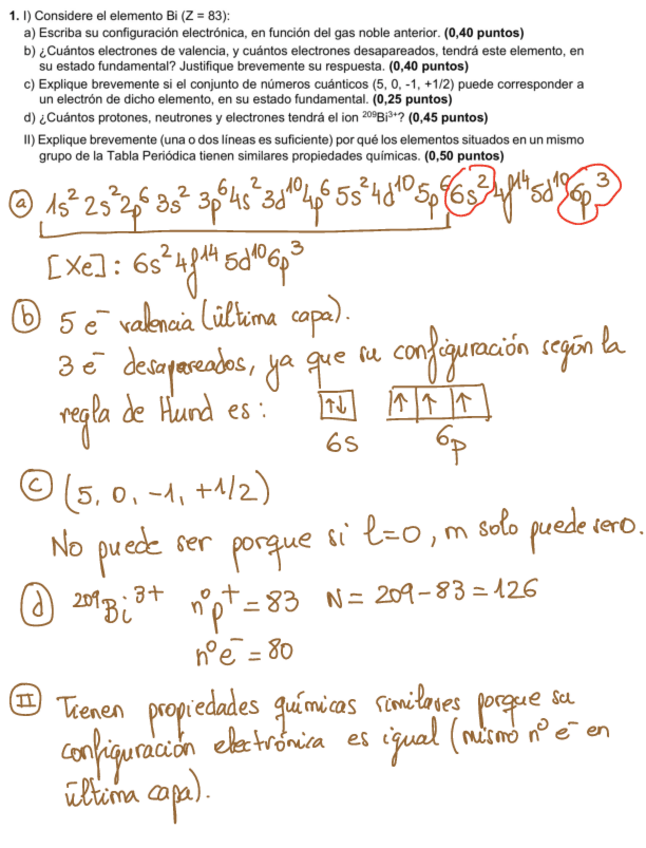 1. I) Considere el elemento Bi (Z = 83):
a) Escriba su configuración electrónica, en función del gas noble anterior. (0,40 puntos)
b) ¿Cuántos electrones de valencia, y cuántos electrones desapareados, tendrá este elemento, en
su estado fundamental? Justifique brevemente su respuesta. (0,40 puntos)
c) Explique brevemente si el conjunto de números cuánticos (5, 0, -1, +1/2) puede corresponder a
un electrón de dicho elemento, en su estado fundamental. (0,25 puntos)
d) ¿Cuántos protones, neutrones y electrones tendrá el ion ²⁰⁹Bi³⁺? (0,45 puntos)
II) Explique brevemente (una o dos líneas es suficiente) por qué los elementos situados en un mismo
grupo de la Tabla Periódica tienen similares propiedades químicas. (0,50 puntos)
ⓐ 1s² 2s² 2p⁶ 3s² 3p⁶ 4s² 3d¹⁰ 4p⁶ 5s² 4d¹⁰ 5p⁶ 6s² 4f¹⁴ 5d¹⁰ 6p³
[Xe]: 6s² 4f¹⁴ 5d¹⁰ 6p³
ⓑ 5 e⁻ valencia (última capa).
3 e⁻ desapareados, ya que su configuración según la
regla de Hund es: ↑↓ ↑ ↑ ↑
6s 6p
ⓒ (5, 0, -1, +1/2)
No puede ser porque si l=0, m solo puede sero.
ⓓ ²⁰⁹Bi³⁺ nºp⁺ = 83 N = 209-83 = 126
nºe⁻ = 80
II Tienen propiedades químicas similares porque su
configuración electrónica es igual (mismo nº e⁻ en
última capa).